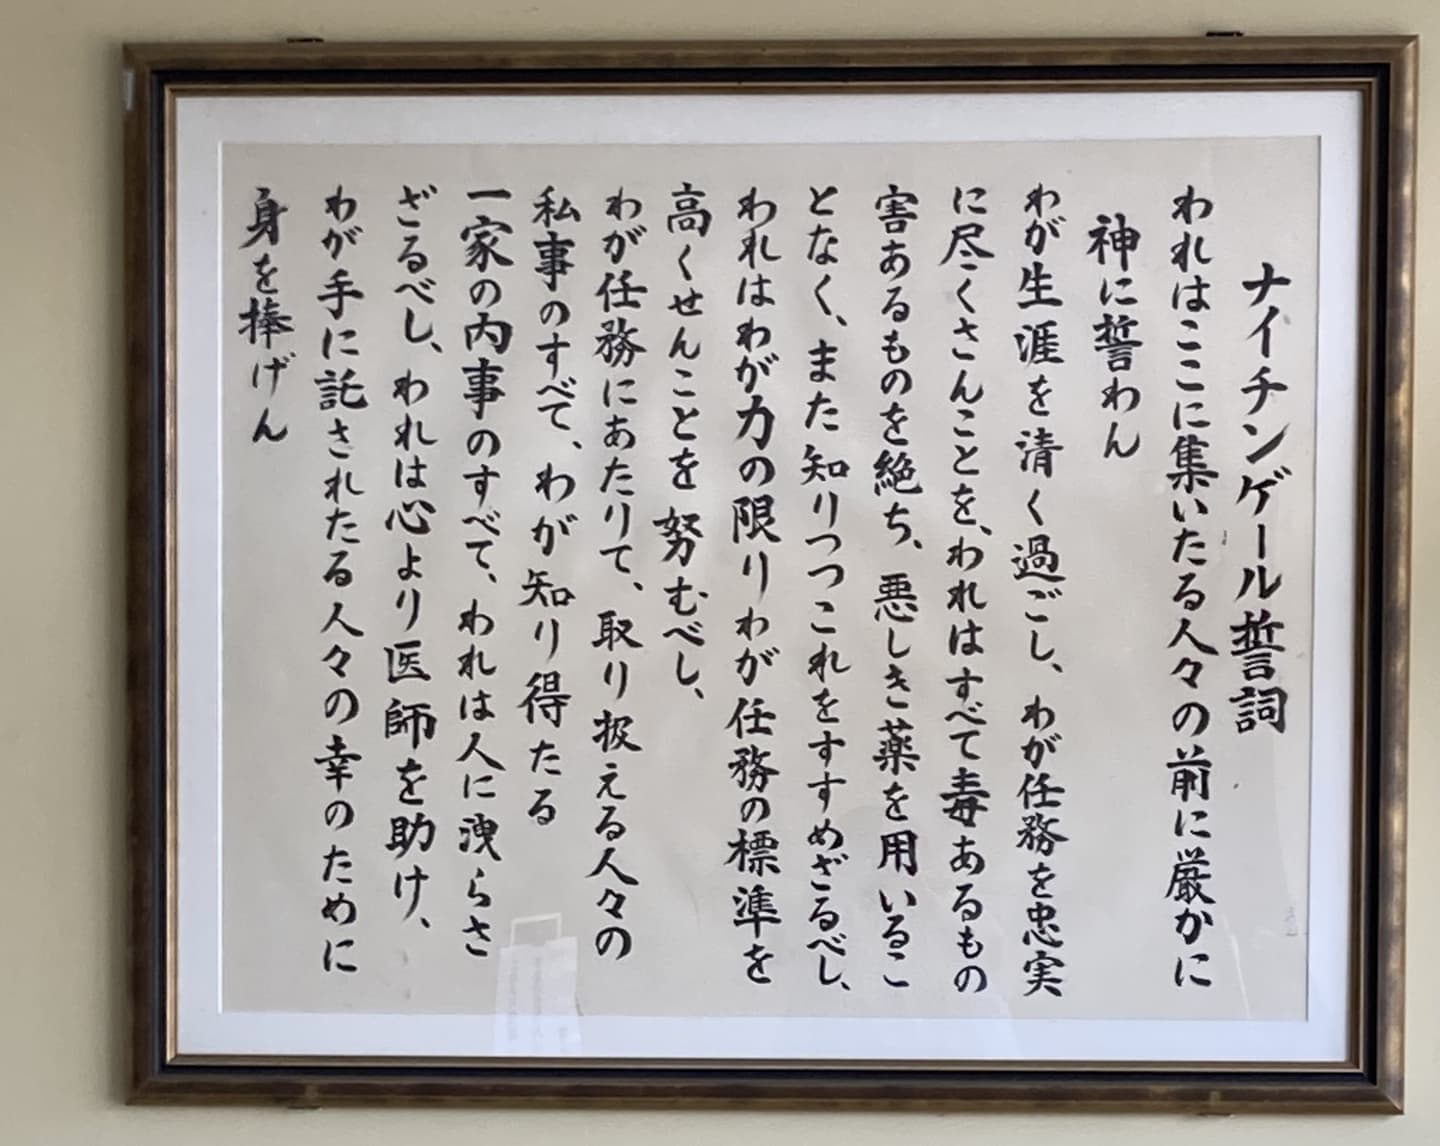 ナイチンゲール誓詞
われはここに集いたる人々の前に厳かに
神に誓わん
わが生涯を清く過ごし、わが任務を忠実
に尽くさんことを、われはすべて毒あるもの
害あるものを絶ち、悪しき薬を用いるこ
となく、また知りつつこれをすすめざるべし、
われはわが力の限りわが任務の標準を
高くせんことを努むべし、
わが任務にあたりて、取り扱える人々の
私事のすべて、わが知り得たる
一家の内事のすべて、われは人に洩らさ
ざるべし、われは心より医師を助け、
わが手に託されたる人々の幸のために
身を捧げん